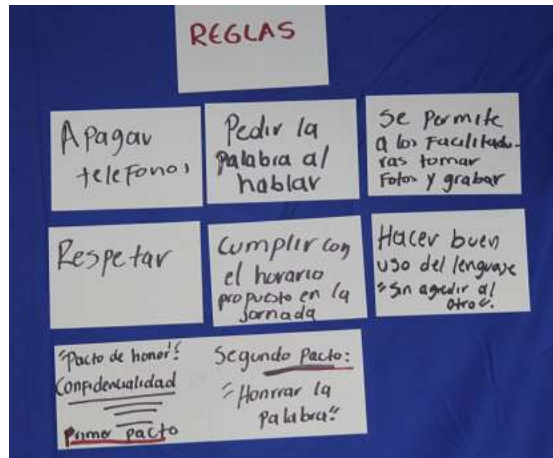 REGLAS
Apagar
telefonos
Pedir la
palabra al
hablar
Se permite
a los Facilitado-
ras tomar
Fotos y grabar
Respetar
Cumplir con
el horario
propuesto en la
jornada
Hacer buen
uso del lenguaje
"Sin agredir al
otro".
"Pacto de honor":
Confidencialidad
Primer pacto
Segundo Pacto:
"Honrrar la
palabra"